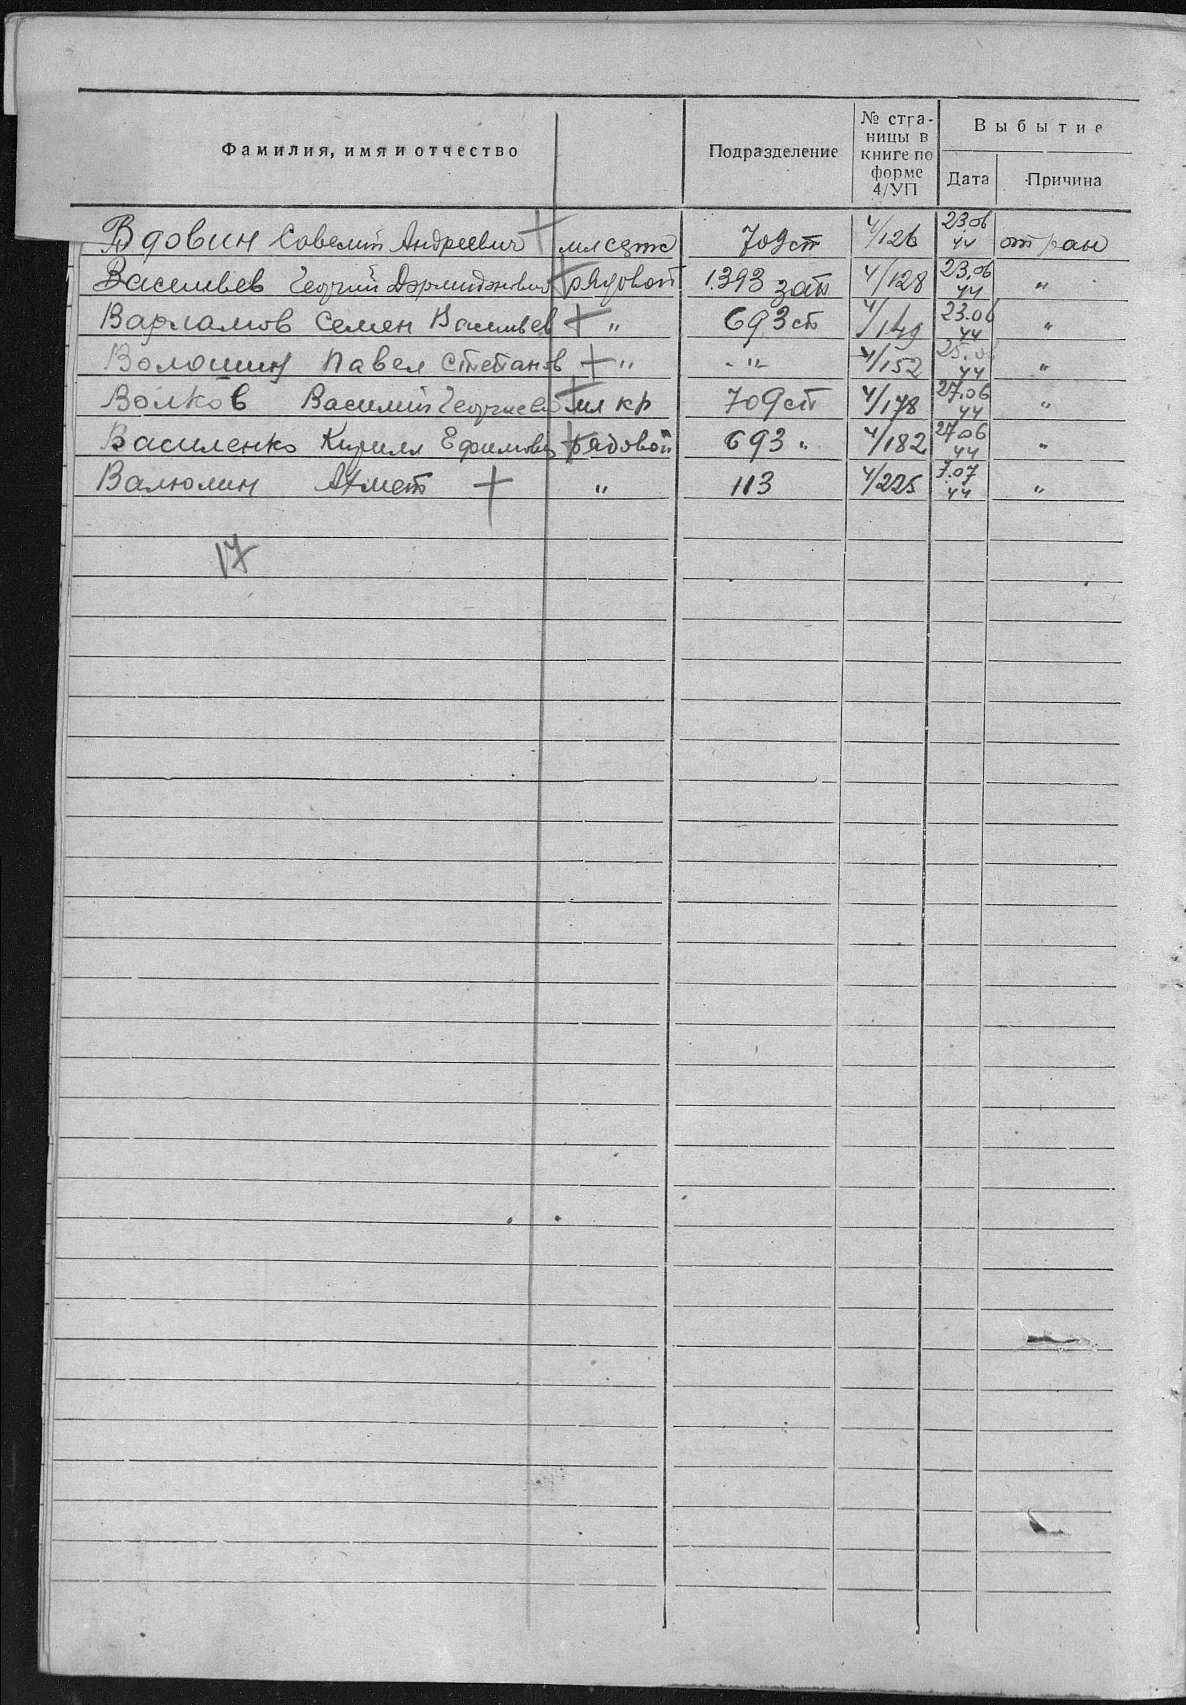 Фамилия, имя и отчество
Подразделение
№ стра-
ницы в
книге по
форме
4/УП
Выбытие
Дата
Причина
Вдовин Савелий Андреевич + мл сержт 709 сп 4/126 23.06 44 от ран
Васильев Георгий + рядовой 1393 зап 4/128 23.06 44 "
Варламов Семен Васильев + " 693 сп 4/149 23.06 44 "
Волошин Павел Степанов + " " 4/152 44 "
Волков Василий Георгиев + мл кр 709 сп 4/178 27.06 44 "
Василенко Кирилл Ефимович + рядовой 693 " 4/182 27.06 44 "
Валюлин Ахмет + " 113 4/225 7.07 44 "
17